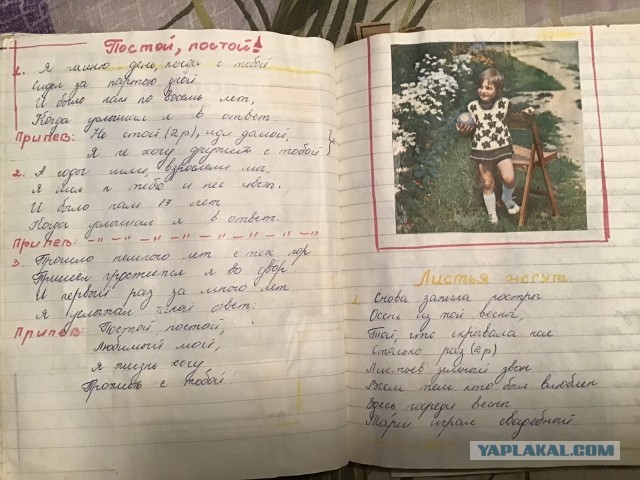 Постой, постой!
1. Я помню день, когда с тобой
Сидел за партою одной
И было нам по восемь лет,
Когда услышал я в ответ.
Припев: Не стой (2р), иди домой,
Я не хочу дружить с тобой
2. А годы шли, взрослели мы.
Я шёл к тебе и нёс цветы.
И было нам 17 лет
Когда услышал я в ответ.
Припев: -"-"-"-"-"-"-"-
3. Прошло немного лет с тех пор
Пришёл проститься я во двор.
И первый раз за много лет
Я услышал такой ответ:
Припев: Постой, постой,
Любимый мой,
Я жизнь хочу
Прожить с тобой
Листья жгут.
1. Снова запела костры
Осень из той весны,
Той, что скрывала нас
Столько раз (2р)
Листьев зелёный звон
Всем тем кто был влюблен
Здесь посреди весны
Марш играл свадебный
YAPLAKAL.COM